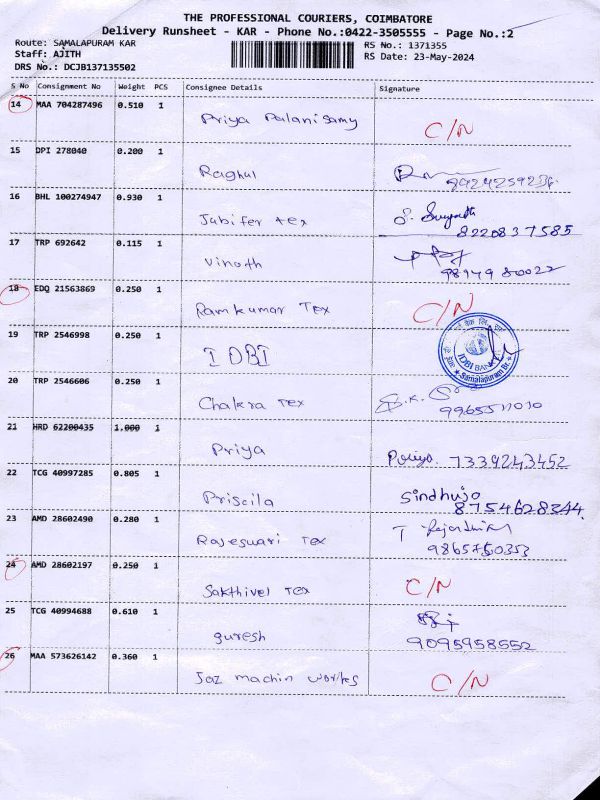 THE PROFESSIONAL COURIERS, COIMBATORE
Delivery Runsheet - KAR - Phone No.:0422-3505555 - Page No.:2
Route: SAMALAPURAM KAR
RS No.: 1371355
Staff: AJITH
RS Date: 23-May-2024
DRS No.: DCJB137135502
S No Consignment No Weight PCS Consignee Details Signature
14 MAA 704287496 0.510 1
Priya Palanisamy C/N
15 DPI 278040 0.200 1
Raghul
16 BHL 100274947 0.930 1
Jubifer tex
8220837585
17 TRP 692642 0.115 1
Vinoth
18 EDQ 21563869 0.250 1
Ramkumar Tex C/N
19 TRP 2546998 0.250 1
IDBI
IDBI BANK
Samalapuram Br.
20 TRP 2546606 0.250 1
Chakra Tex
21 HRD 62200435 1.000 1
Priya 7339243452
22 TCG 40997285 0.805 1
Priscila Sindhujo
8754628344
23 AMD 28602490 0.280 1
Rajeswari Tex
9865750353
24 AMD 28602197 0.250 1
Sakthivel Tex C/N
25 TCG 40994688 0.610 1
guresh 9095958552
26 MAA 573626142 0.360 1
Jaz machin workes C/N